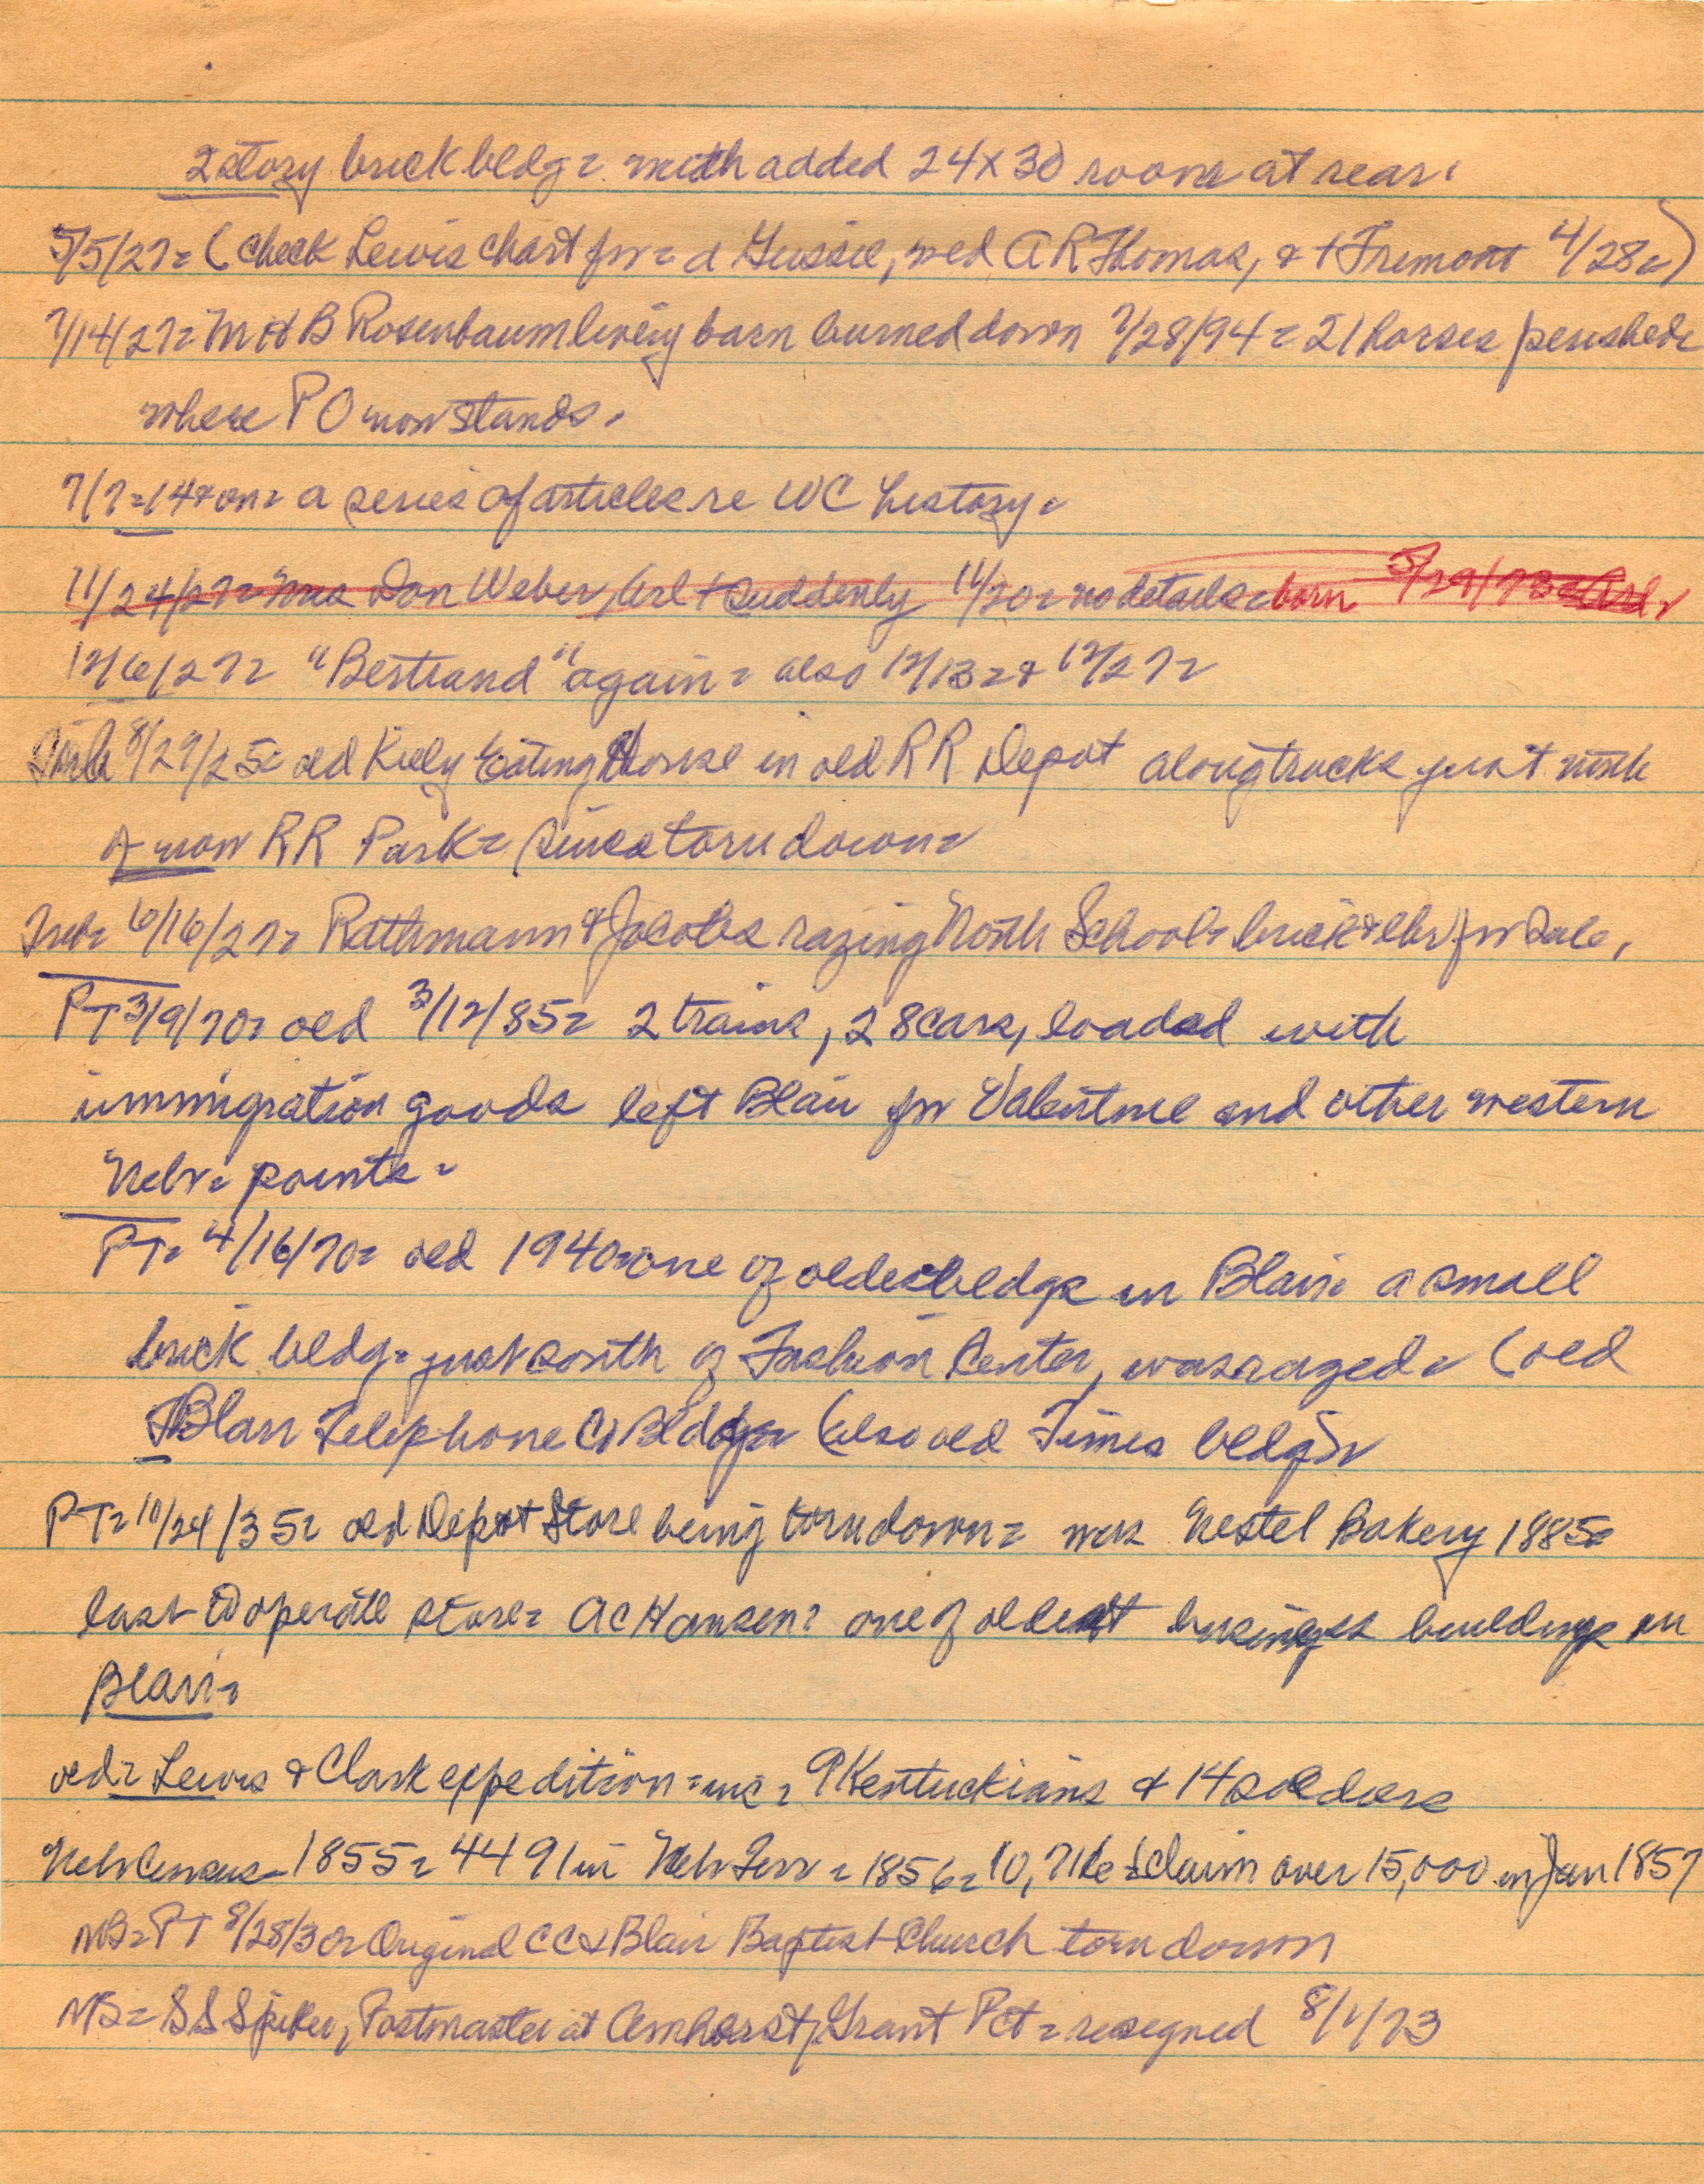 2 story brick bldg = with added 24 X 30 room at rear.
5/5/27 = (check Lewis chart for = d Gussie, wed A R Thomas, & + Fremont 4/28 =)
7/14/27 = M H B Rosenbaum livery barn burned down 7/28/94 = 21 horses perished =
where P O now stands.
7/7 = 14 & on = a series of articles re WC history =
11/24/27 = Mrs Don Weber, Arl + suddenly 11/20 = no details = born 5/29/73 = Arl =
12/6/27 = "Bertrand" again = also 12/13 = & 12/27 =
8/29/25 = old Kiely Eating House in old RR Depot along tracks just north
of now RR Park = since torn down =
6/16/27 = Rathmann & Jacobs razing North School = brick & lbr for sale.
PT 3/9/70 = old 3/12/85 = 2 trains, 28 cars, loaded with
immigration goods left Blair for Valentine and other western
Nebr = points =
PT = 4/16/70 = old 1940 = one of oldest bldgs in Blair = a small
brick bldg = just south of Fashion Center, was razed = (old
Blair Telephone Co Bldg = (also old Times bldg) =
PT = 10/24/35 = old Depot Store being torn down = was Nestel Bakery 1885 =
last to operate store = A C Hansen = one of oldest business buildings in
Blair =
old = Lewis & Clark expedition = inc = 9 Kentuckians & 14 soldiers
Nebr Census = 1855 = 4491 in Nebr Terr = 1856 = 10,716 = claim over 15,000 in Jan 1857
NB = PT 8/28/30 = Original C C & Blair Baptist Church torn down
NB = S S Spiker, Postmaster at Amhorst, Grant Pct = resigned 8/1/73